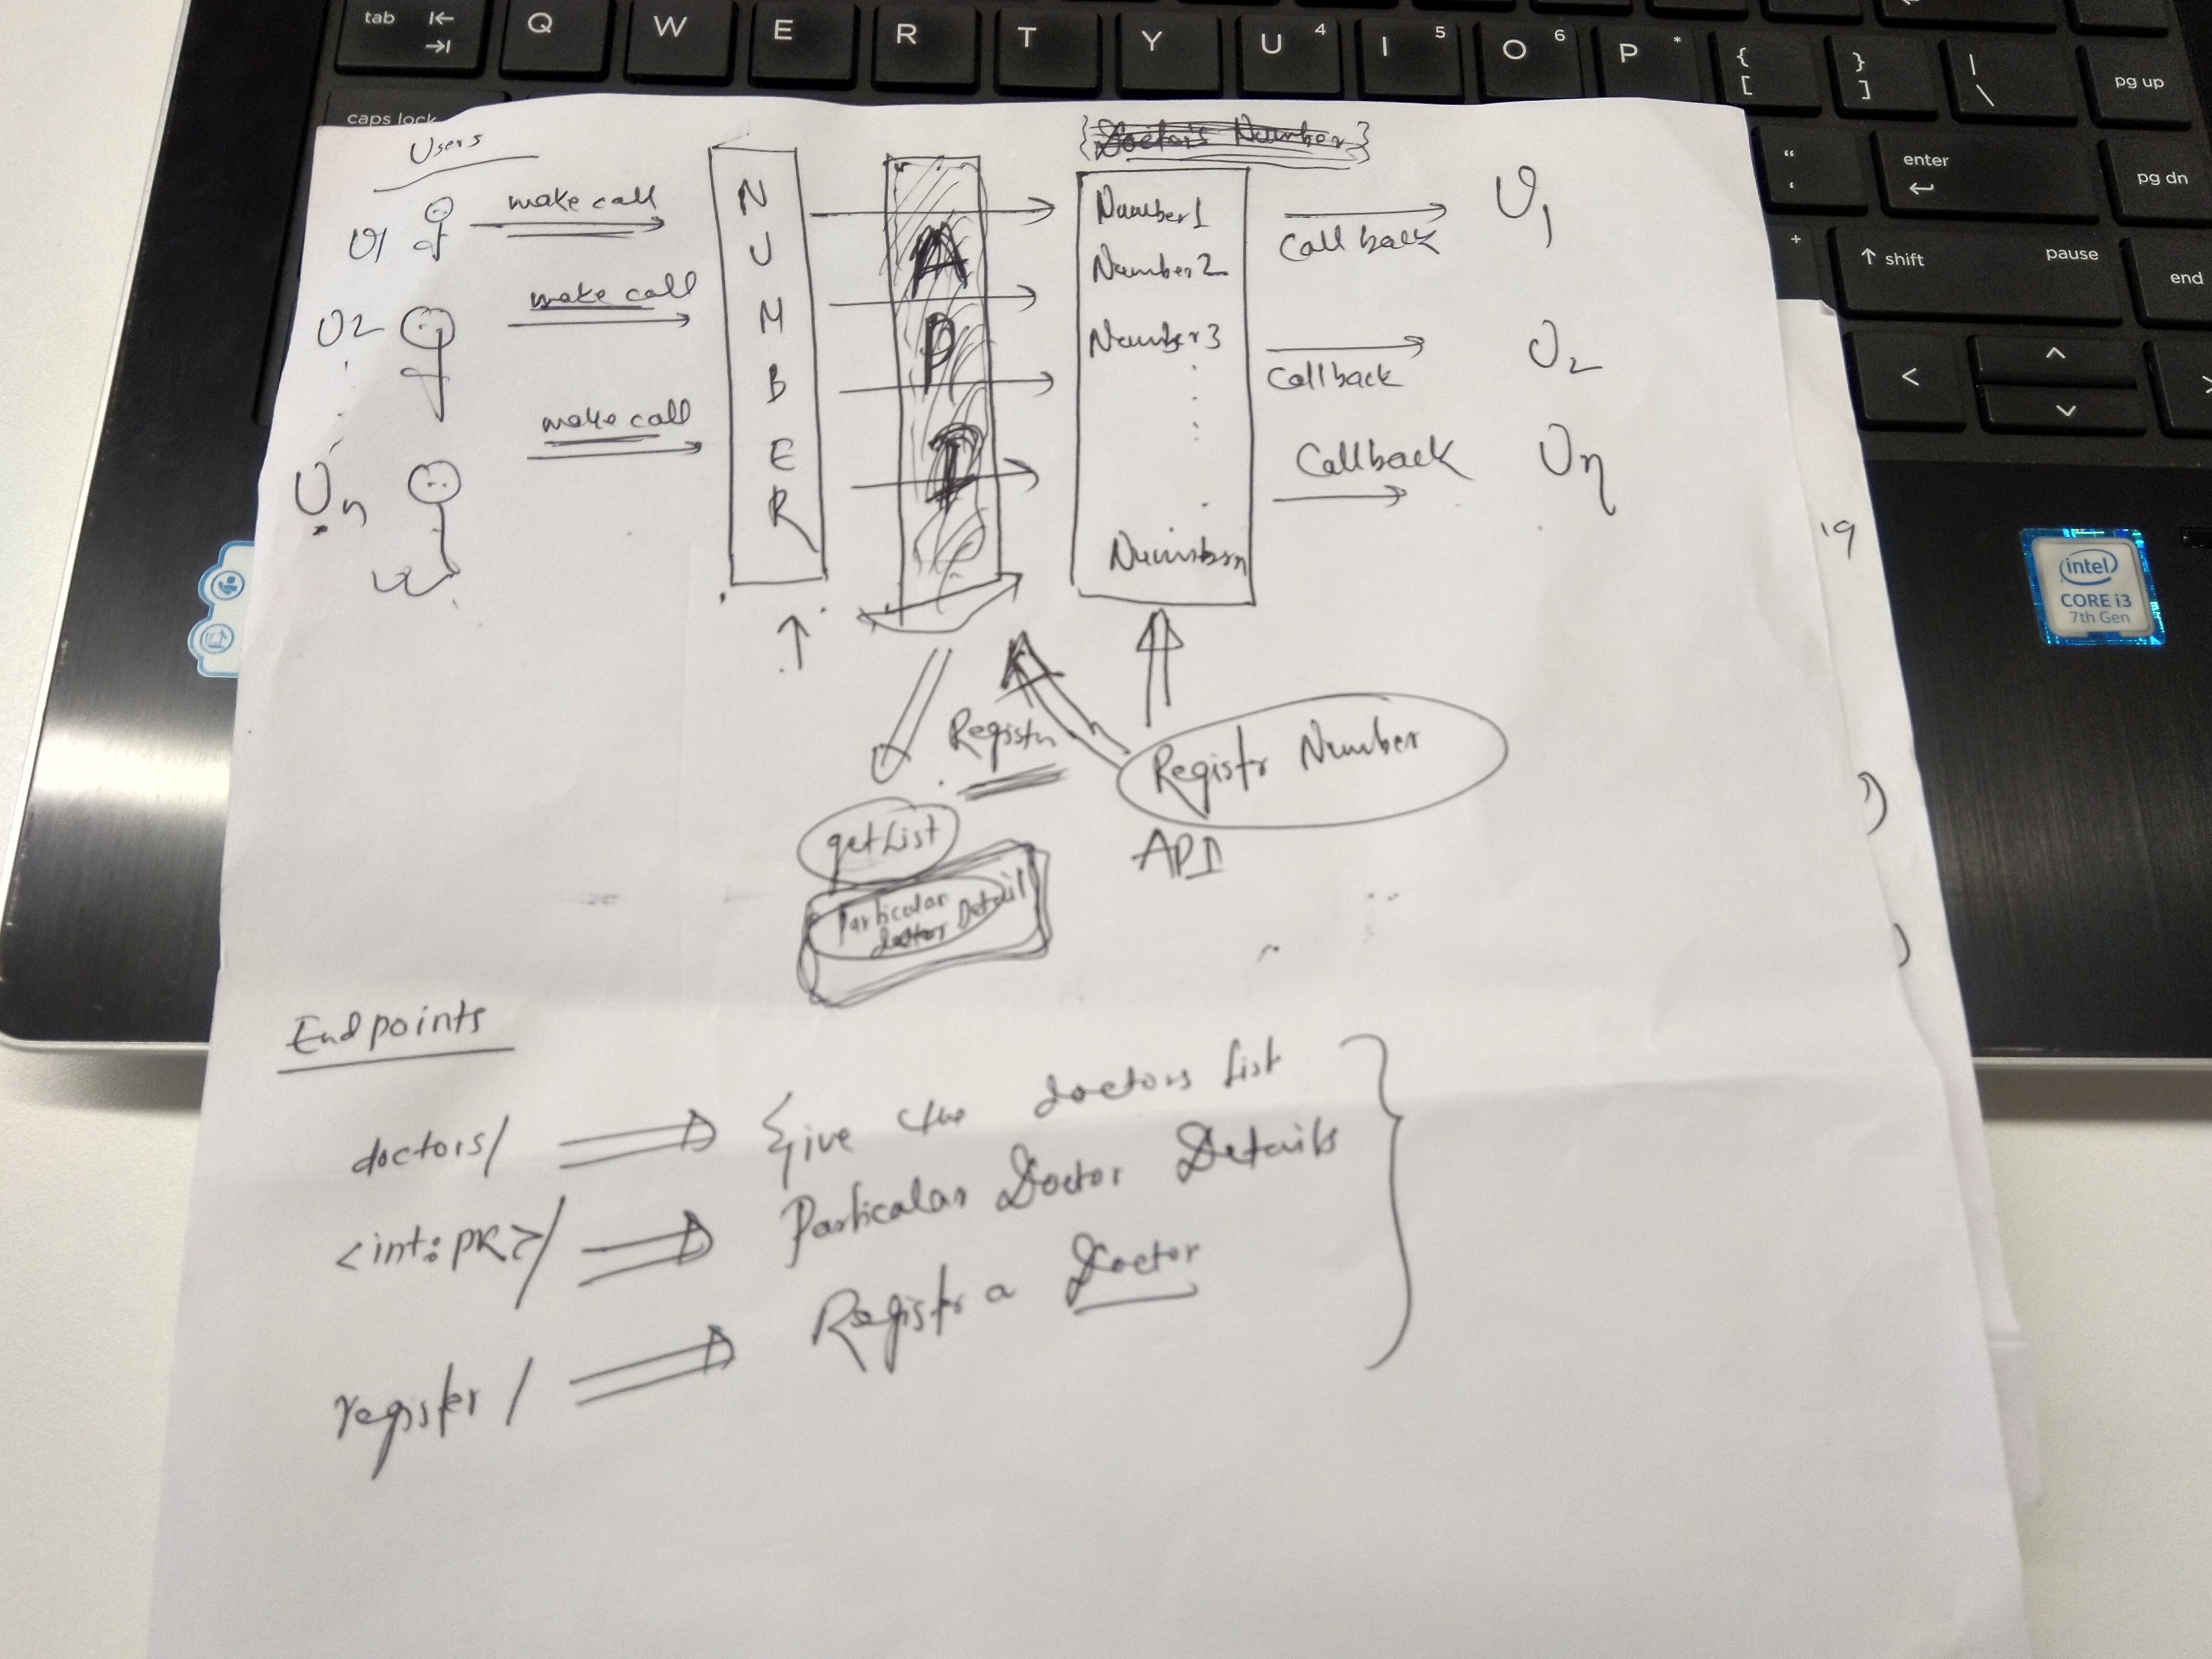 tab
Q W E R T Y U 4 I 5 O 6 P *
{ [
} ]
| \
pg up
caps lock
" '
enter
pg dn
+
shift
pause
end
< ^ v >
intel
CORE i3
7th Gen
Users
{Doctor's Number}
U1 make call
U2 make call
Un make call
NUMBER
API
Number1
Number2
Number3
Numbern
Call back U1
Callback U2
Callback Un
Registr
Registr Number
API
getList
Particular doctor Detail
19
Endpoints
doctors/ Give the doctors list
<int:PK>/ Particular Doctor Details
register/ Registr a Doctor